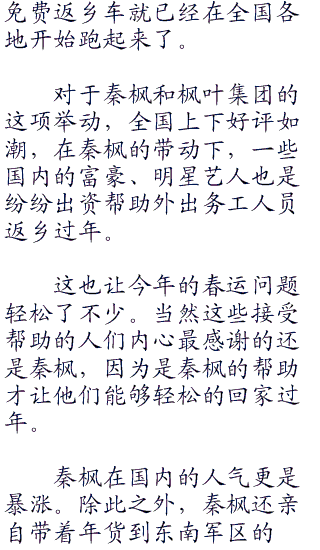 免费返乡车就已经在全国各
地开始跑起来了。
对于秦枫和枫叶集团的
这项举动，全国上下好评如
潮，在秦枫的带动下，一些
国内的富豪、明星艺人也是
纷纷出资帮助外出务工人员
返乡过年。
这也让今年的春运问题
轻松了不少。当然这些接受
帮助的人们内心最感谢的还
是秦枫，因为是秦枫的帮助
才让他们能够轻松的回家过
年。
秦枫在国内的人气更是
暴涨。除此之外，秦枫还亲
自带着年货到东南军区的